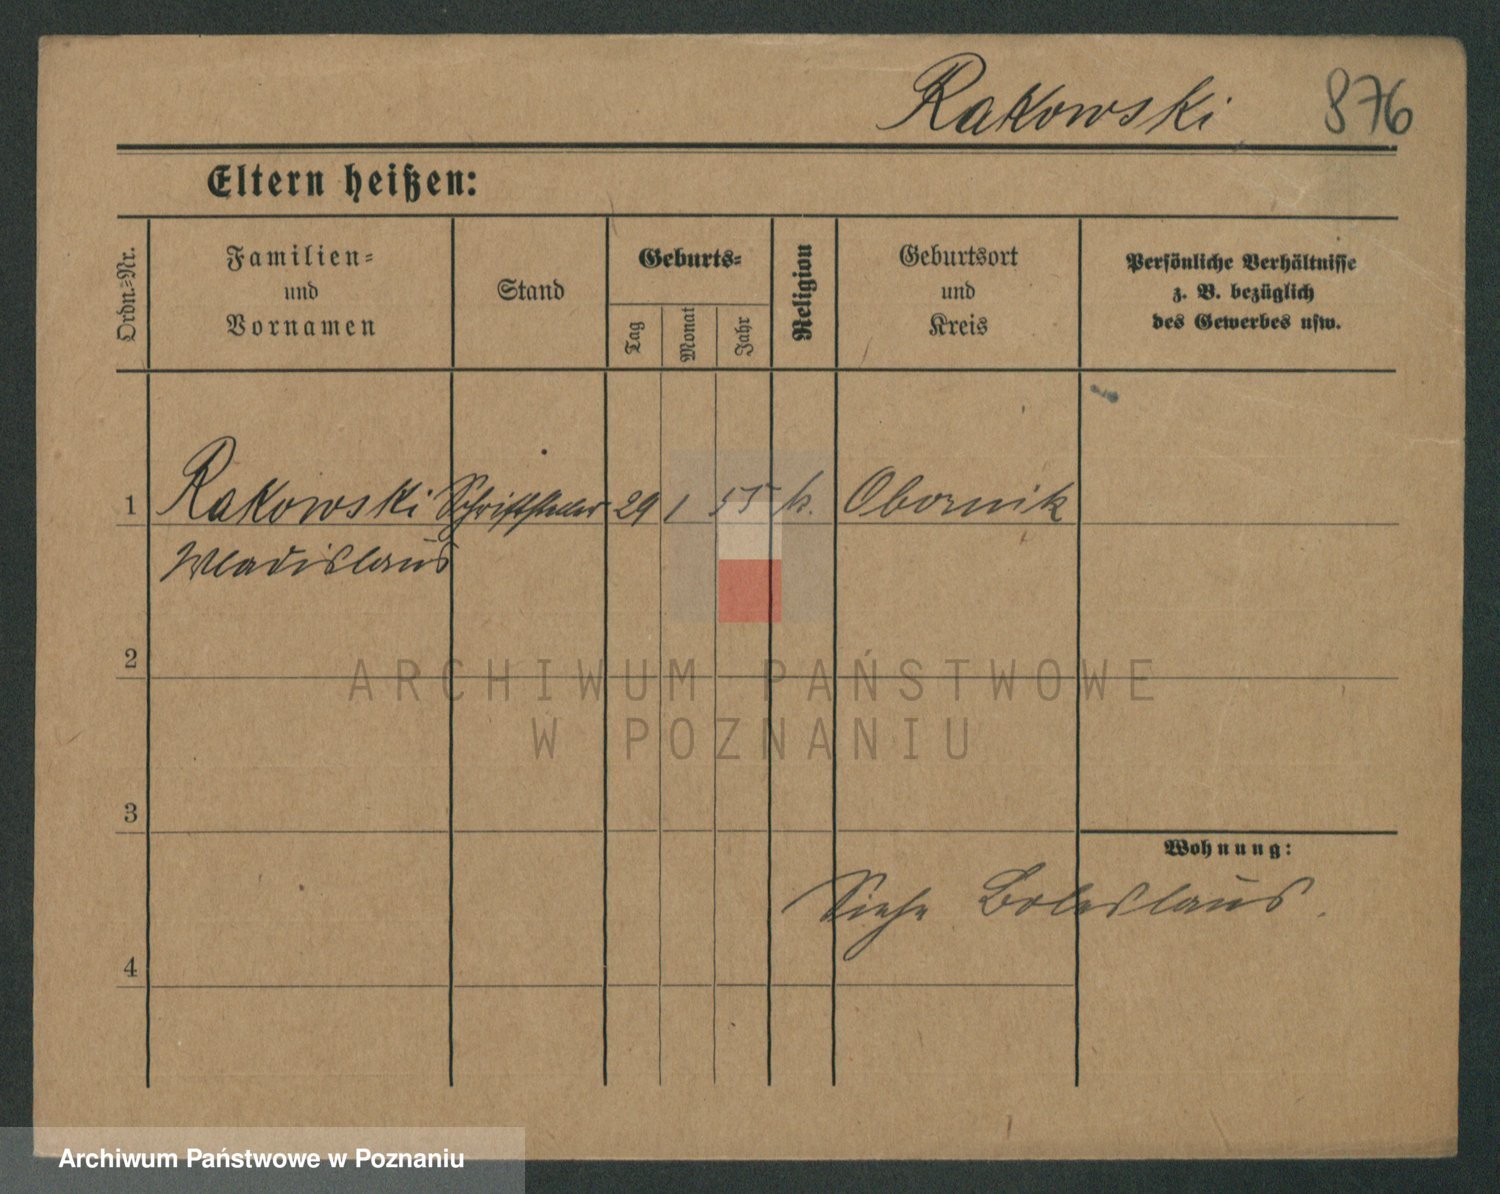 Rakowski 876
Eltern heißen:
Ordn.-Nr.
Familien-
und
Vornamen
Stand
Geburts-
Tag
Monat
Jahr
Religion
Geburtsort
und
Kreis
Persönliche Verhältnisse
z. B. bezüglich
des Gewerbes usw.
1 Rakowski Schriftsetzer 29 1 55 k. Obornik
Wladislaus
2
ARCHIWUM PAŃSTWOWE
W POZNANIU
3
Wohnung:
Siehe Boleslaus.
4
Archiwum Państwowe w Poznaniu